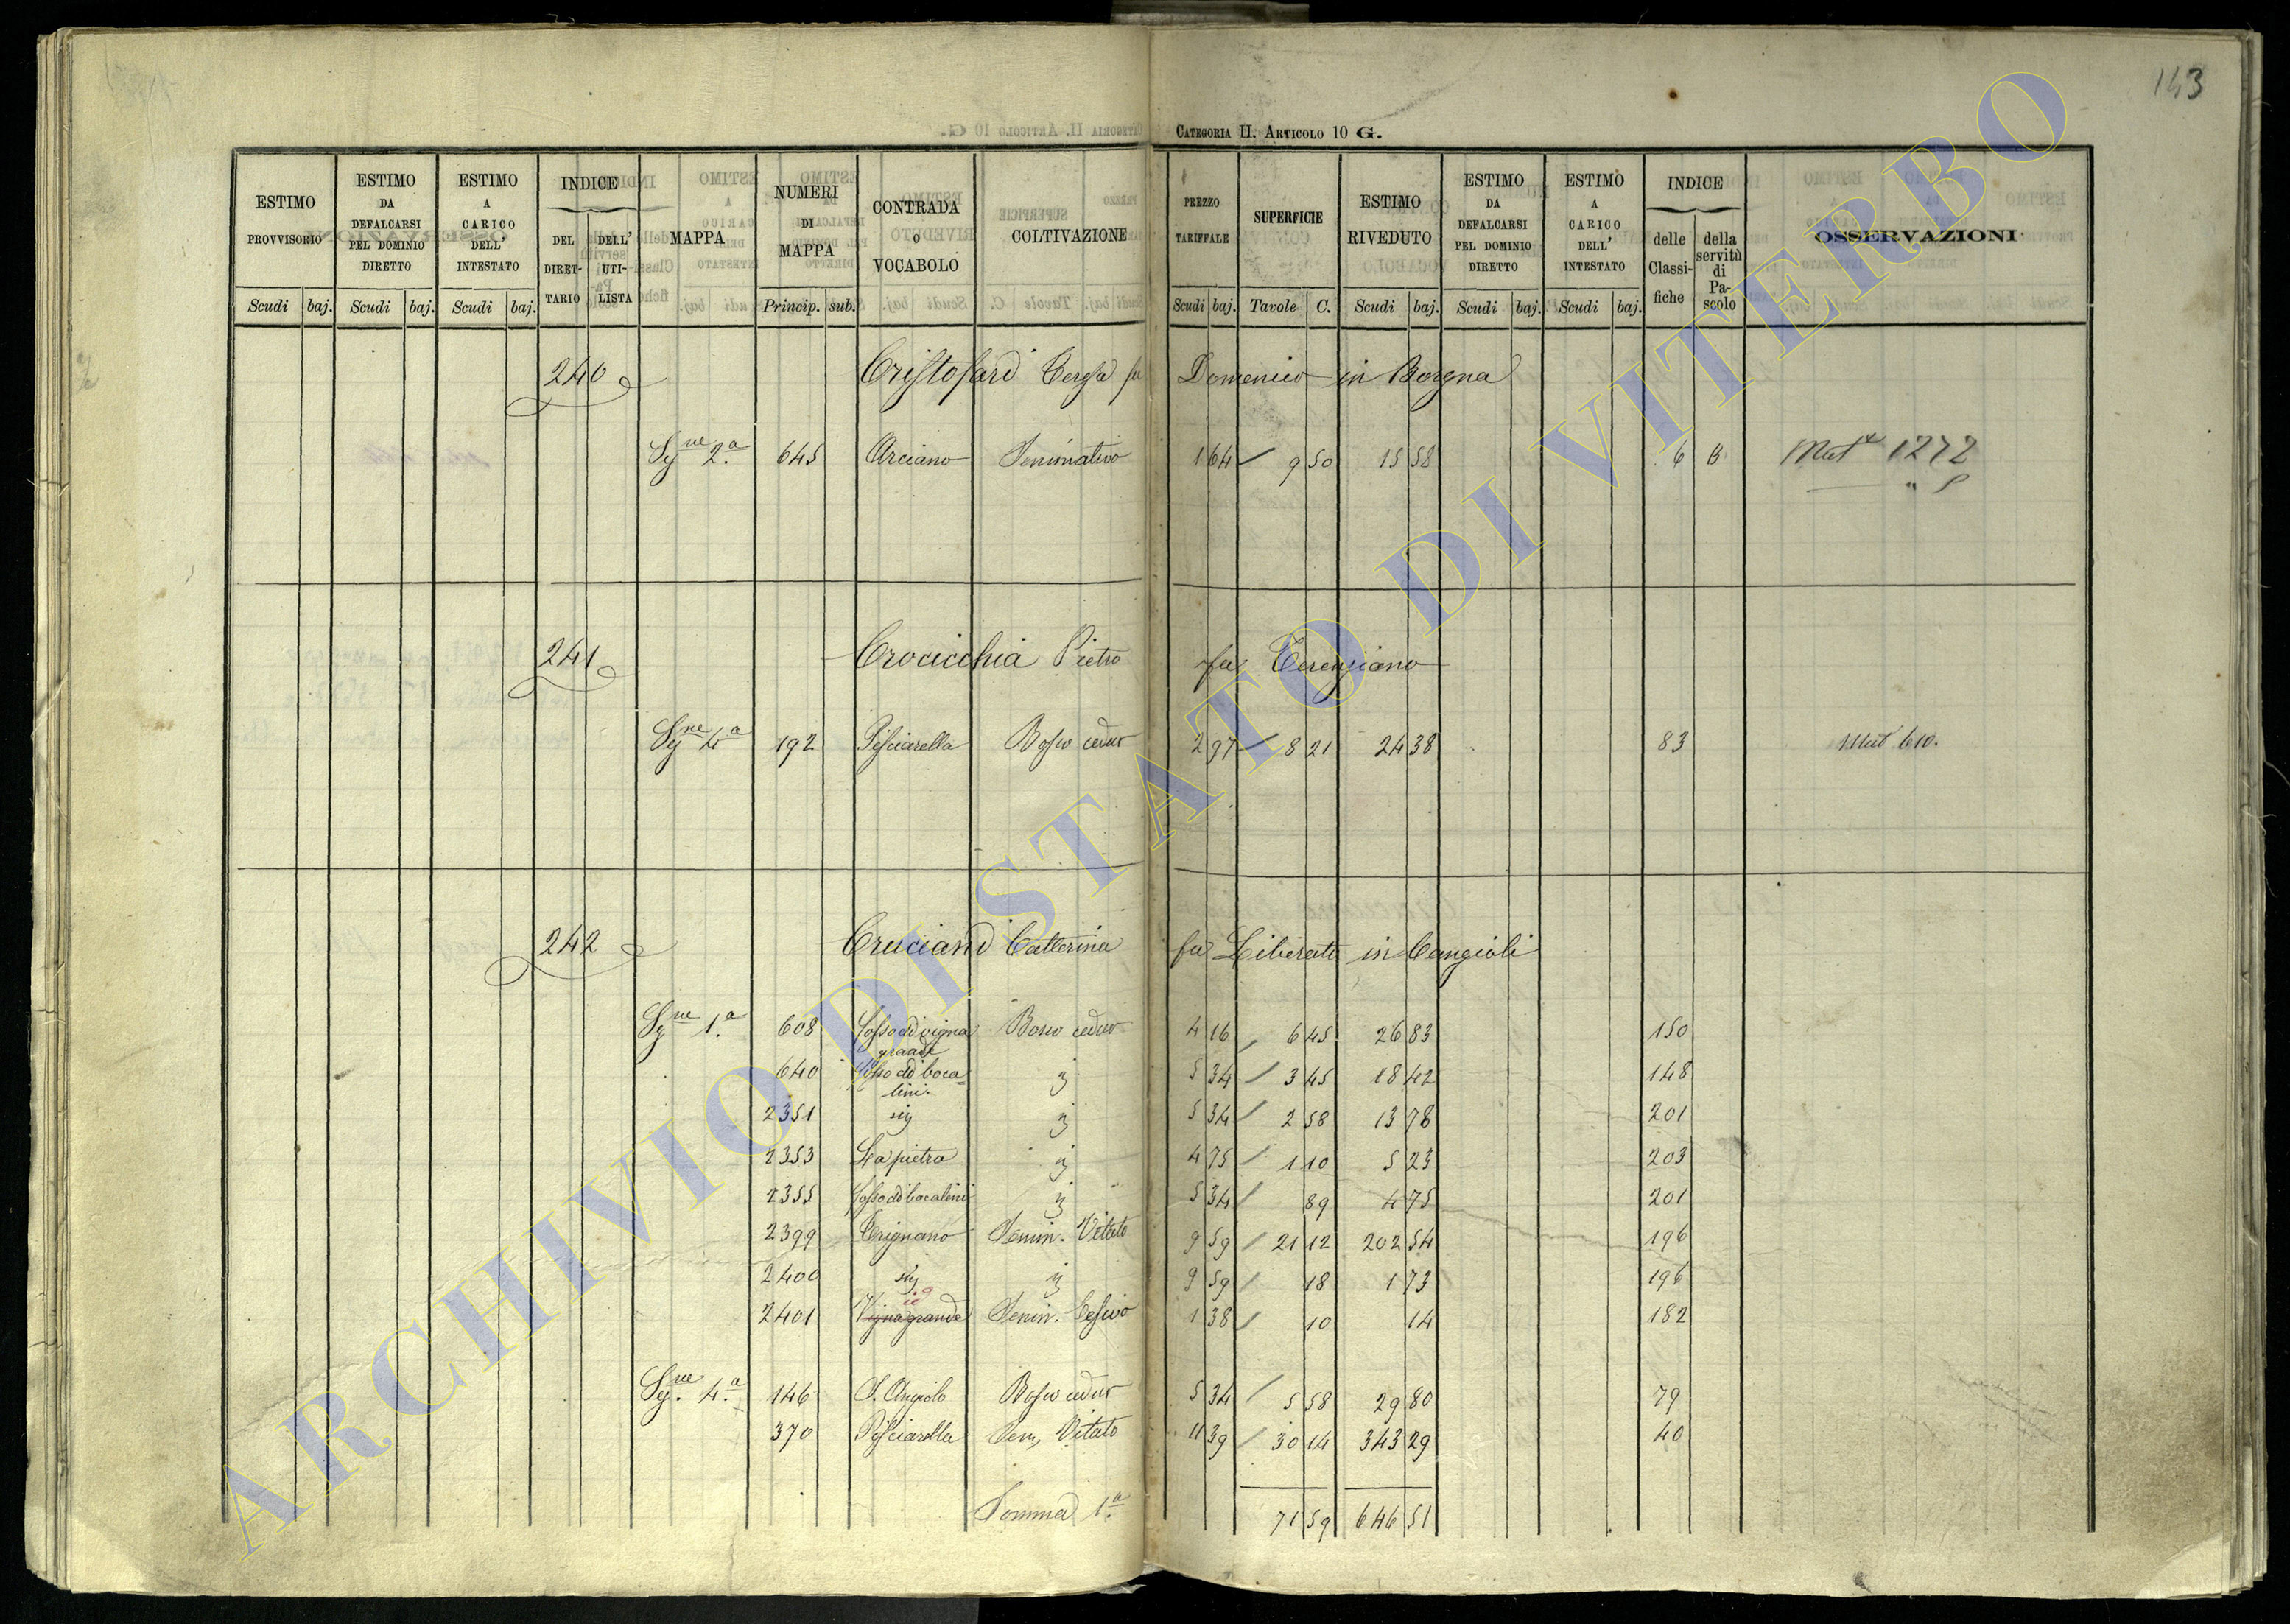 143
CATEGORIA II. ARTICOLO 10 G.
ESTIMO PROVVISORIO Scudi baj.
ESTIMO DA DEFALCARSI PEL DOMINIO DIRETTO Scudi baj.
ESTIMO A CARICO DELL' INTESTATO Scudi baj.
INDICE DEL DIRET-TARIO DELL' UTI-LISTA
MAPPA
NUMERI DI MAPPA Princip. sub.
CONTRADA O VOCABOLO
COLTIVAZIONE
PREZZO TARIFFALE Scudi baj.
SUPERFICIE Tavole C.
ESTIMO RIVEDUTO Scudi baj.
ESTIMO DA DEFALCARSI PEL DOMINIO DIRETTO Scudi baj.
ESTIMO A CARICO DELL' INTESTATO Scudi baj.
INDICE delle Classi-fiche della servitù di Pa-scolo
OSSERVAZIONI
240 Cristofari Teresa fu Domenico in Borgna
Sg.ne 2.a 645 Arciano Seminativo 1 64 / 9 50 15 58 6 B Mut.e 1272
241 Crocicchia Pietro fu Terenziano
Sg.ne 4.a 192 Pisciarella Bosco ceduo 2 97 / 8 21 24 38 83 Mut 610.
242 Cruciani Catterina fu Liberato in Cangioli
Sg.ne 1.a 608 Fosso di vigna grande Bosco ceduo 4 16 / 6 45 26 83 150
640 Fosso di boca=lini. 5 34 / 3 45 18 42 148
2351 5 34 / 2 58 13 78 201
2353 La pietra 4 75 / 1 10 5 23 203
2355 Fosso di bocalini 5 34 / 89 4 75 201
2399 Trignano Semin. Vitato 9 59 / 21 12 202 54 196
2400 9 59 / 18 1 73 196
2401 Vignagrande Semin. Cesivo 1 38 / 10 14 182
Sg.ne 4.a 146 S. Angiolo Bosco ceduo 5 34 / 5 58 29 80 79
370 Pisciarella Sem. Vitato 11 39 / 30 14 343 29 40
Somma 1.a 71 59 646 51
ARCHIVIO DI STATO DI VITERBO